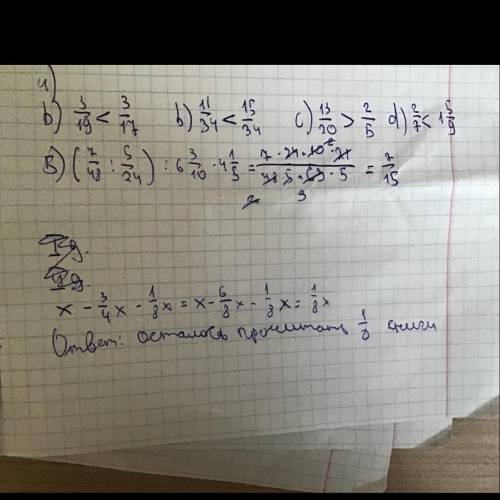 4)
b) 3/19 < 3/17 b) 11/34 < 15/34 c) 13/20 > 2/5 d) 2/7 < 1 5/9
B) (7/48 : 5/24) : 6 3/10 · 4 1/5 = 7 · 24 · 10 · 21 / 48 · 5 · 63 · 5 = 7/15
2 2 3
x - 3/4 x - 1/8 x = x - 6/8 x - 1/8 x = 1/8 x
Ответ: осталось прочитать 1/8 книги